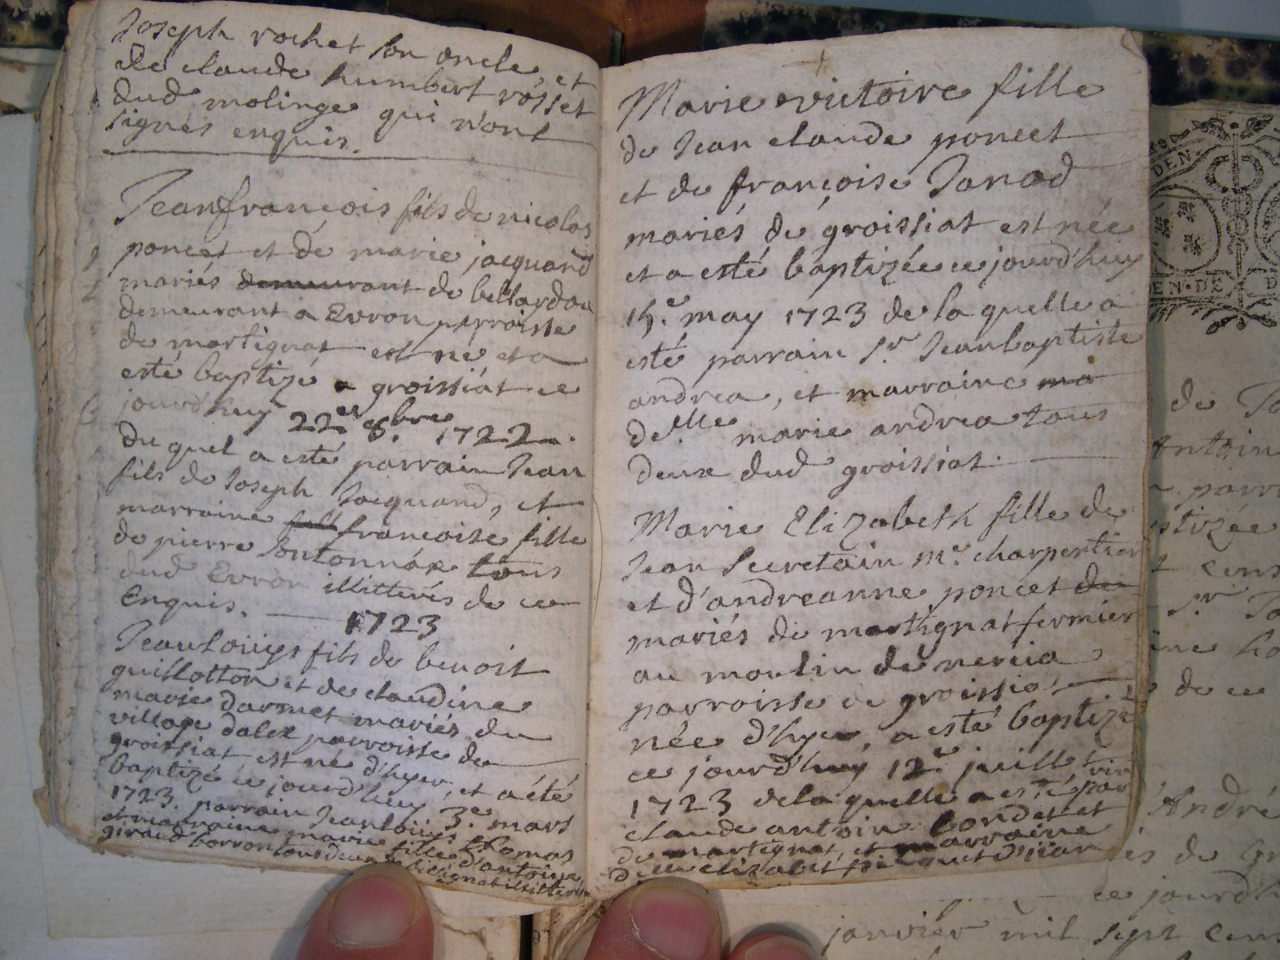 Joseph rochet son oncle, et
de claude humbert rosset
dud molinge qui n'ont
signés enquis.
Jeanfrancois fils de nicolas
poncet et de marie jacquand
mariés demeurant de bellardou
demeurant a Evron parroisse
de martignat est né et a
esté baptizé a groissiat ce
jourd'huy 22e 8.bre 1722.
du quel a esté parrain Jean
fils de Joseph Jacquand, et
marraine francoise fille
de pierre sontonnax tous
dud Evron illitterés de ce
Enquis.
1723
Jeanlouys fils de benoit
guillotton et de claudine
marie darmet mariés du
village dalex parroisse de
groissiat, est né d'hyer, et a été
baptizé ce jourd'huy 3.e mars
1723. parrain Jeanlouys thomas
et marraine marie fille d'antoine
giraud borron tous deux illitterés
Marie victoire fille
de Jean claude poncet
et de françoise Janod
mariés de groissiat est née
et a esté baptizée ce jourd'huy
15.e may 1723 de la quelle a
esté parrain Sr Jeanbaptiste
andrea, et marraine ma
de.lle marie andrea tous
deux dud groissiat.
Marie Elizabeth fille de
Jean Secretain m.e charpentier
et d'andreanne poncet de
mariés de martignat fermier
au moulin de nercia
parroisse de groissiat
née d'hyer, a esté baptizé
ce jourd'huy 12.e juillet
1723 de la quelle a esté par
rin
claude antoine bondet et
de martignat, et marraine
d.lle elizabet
de Ja
Antoin
parr
tizée
cens
Sr Ja
de ce
André
ce jourd'h
janvier mil sept cen
DEN
DEN·DE